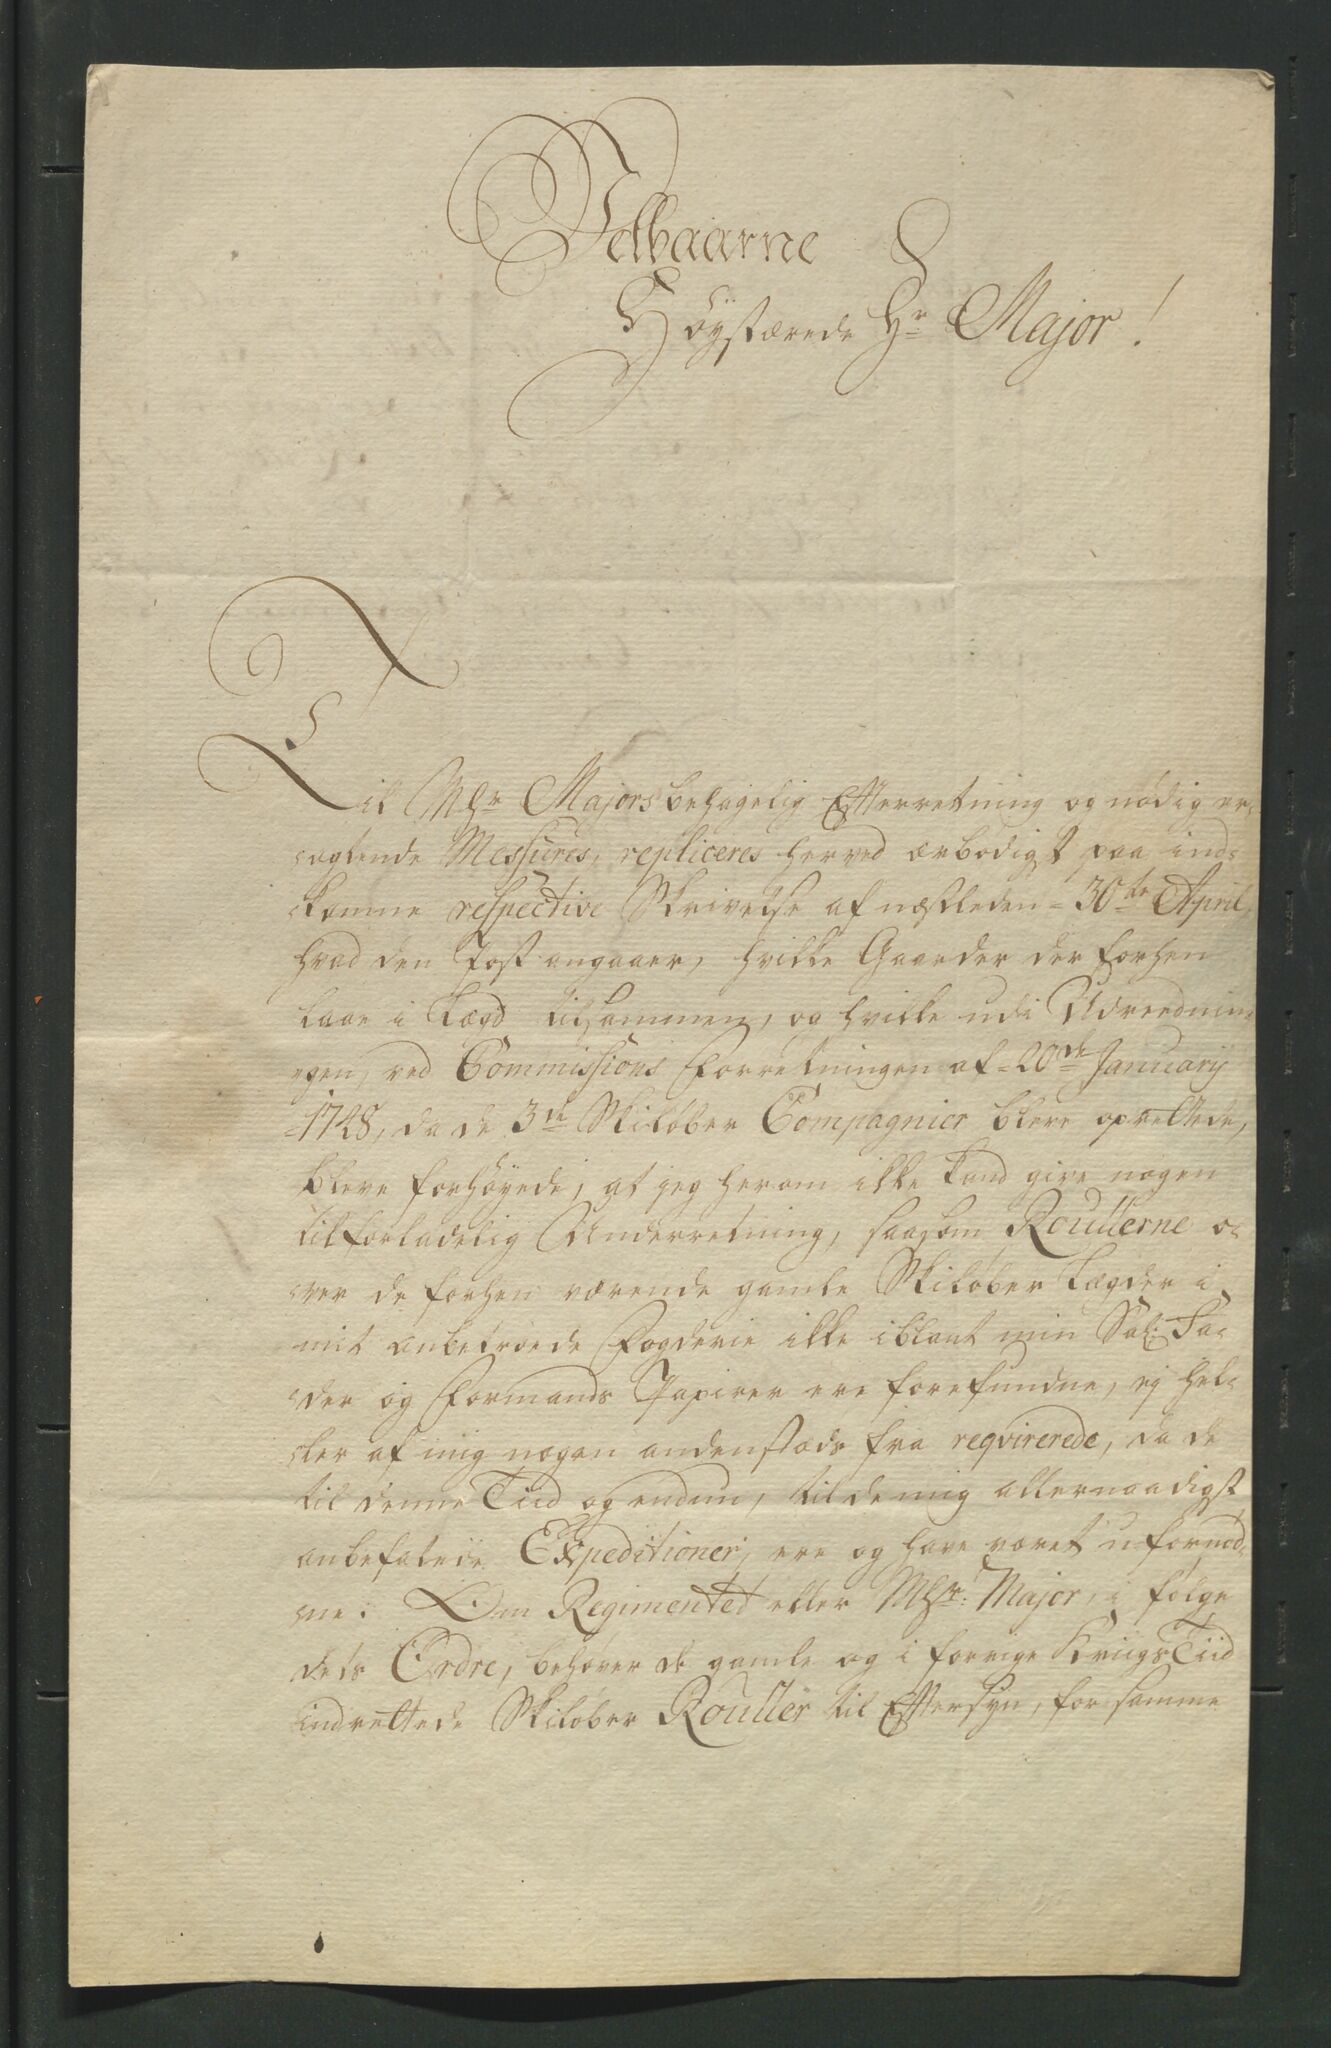 Velbaarne
Høystærede Hr Major!
Til MHr Majors behagelig Efterretning og nødig er-
agtende Messures, repliceres herved ærbødigst paa ind-
komne respective Skrivelse af næstleden 30te April,
hvad den Post angaaer, hvilke Gaarder der forhen
laae i Lægd tilsammen, og hvilke udi Udreednin-
gen, ved Commissions Forretningen af 20de Januarij
1748, da de 3de Skiløber Compagnier bleve oprettede,
bleve forhøyede, at jeg herom ikke kand give nogen
tilforladelig Underretning, saasom Roullerne o-
ver de forhen værende gamle Skiløber Lægder i
mit anbetroede Fogderie ikke iblant min Sal: Fa-
der og Formands Papirer ere forefundne, ej hel-
ler af mig nogen andenstæds fra reqvirerede, da de
til denne Tiid og endnu, til de mig allernaadigst
anbefalede Expeditioner, ere og have været ufornød-
ne. Om Regimentet eller MHr: Major, i følge
dets Ordre, behøver de gamle og i forrige Kriigs Tiid
indrettede Skiløber Rouller til Eftersyn, for samme